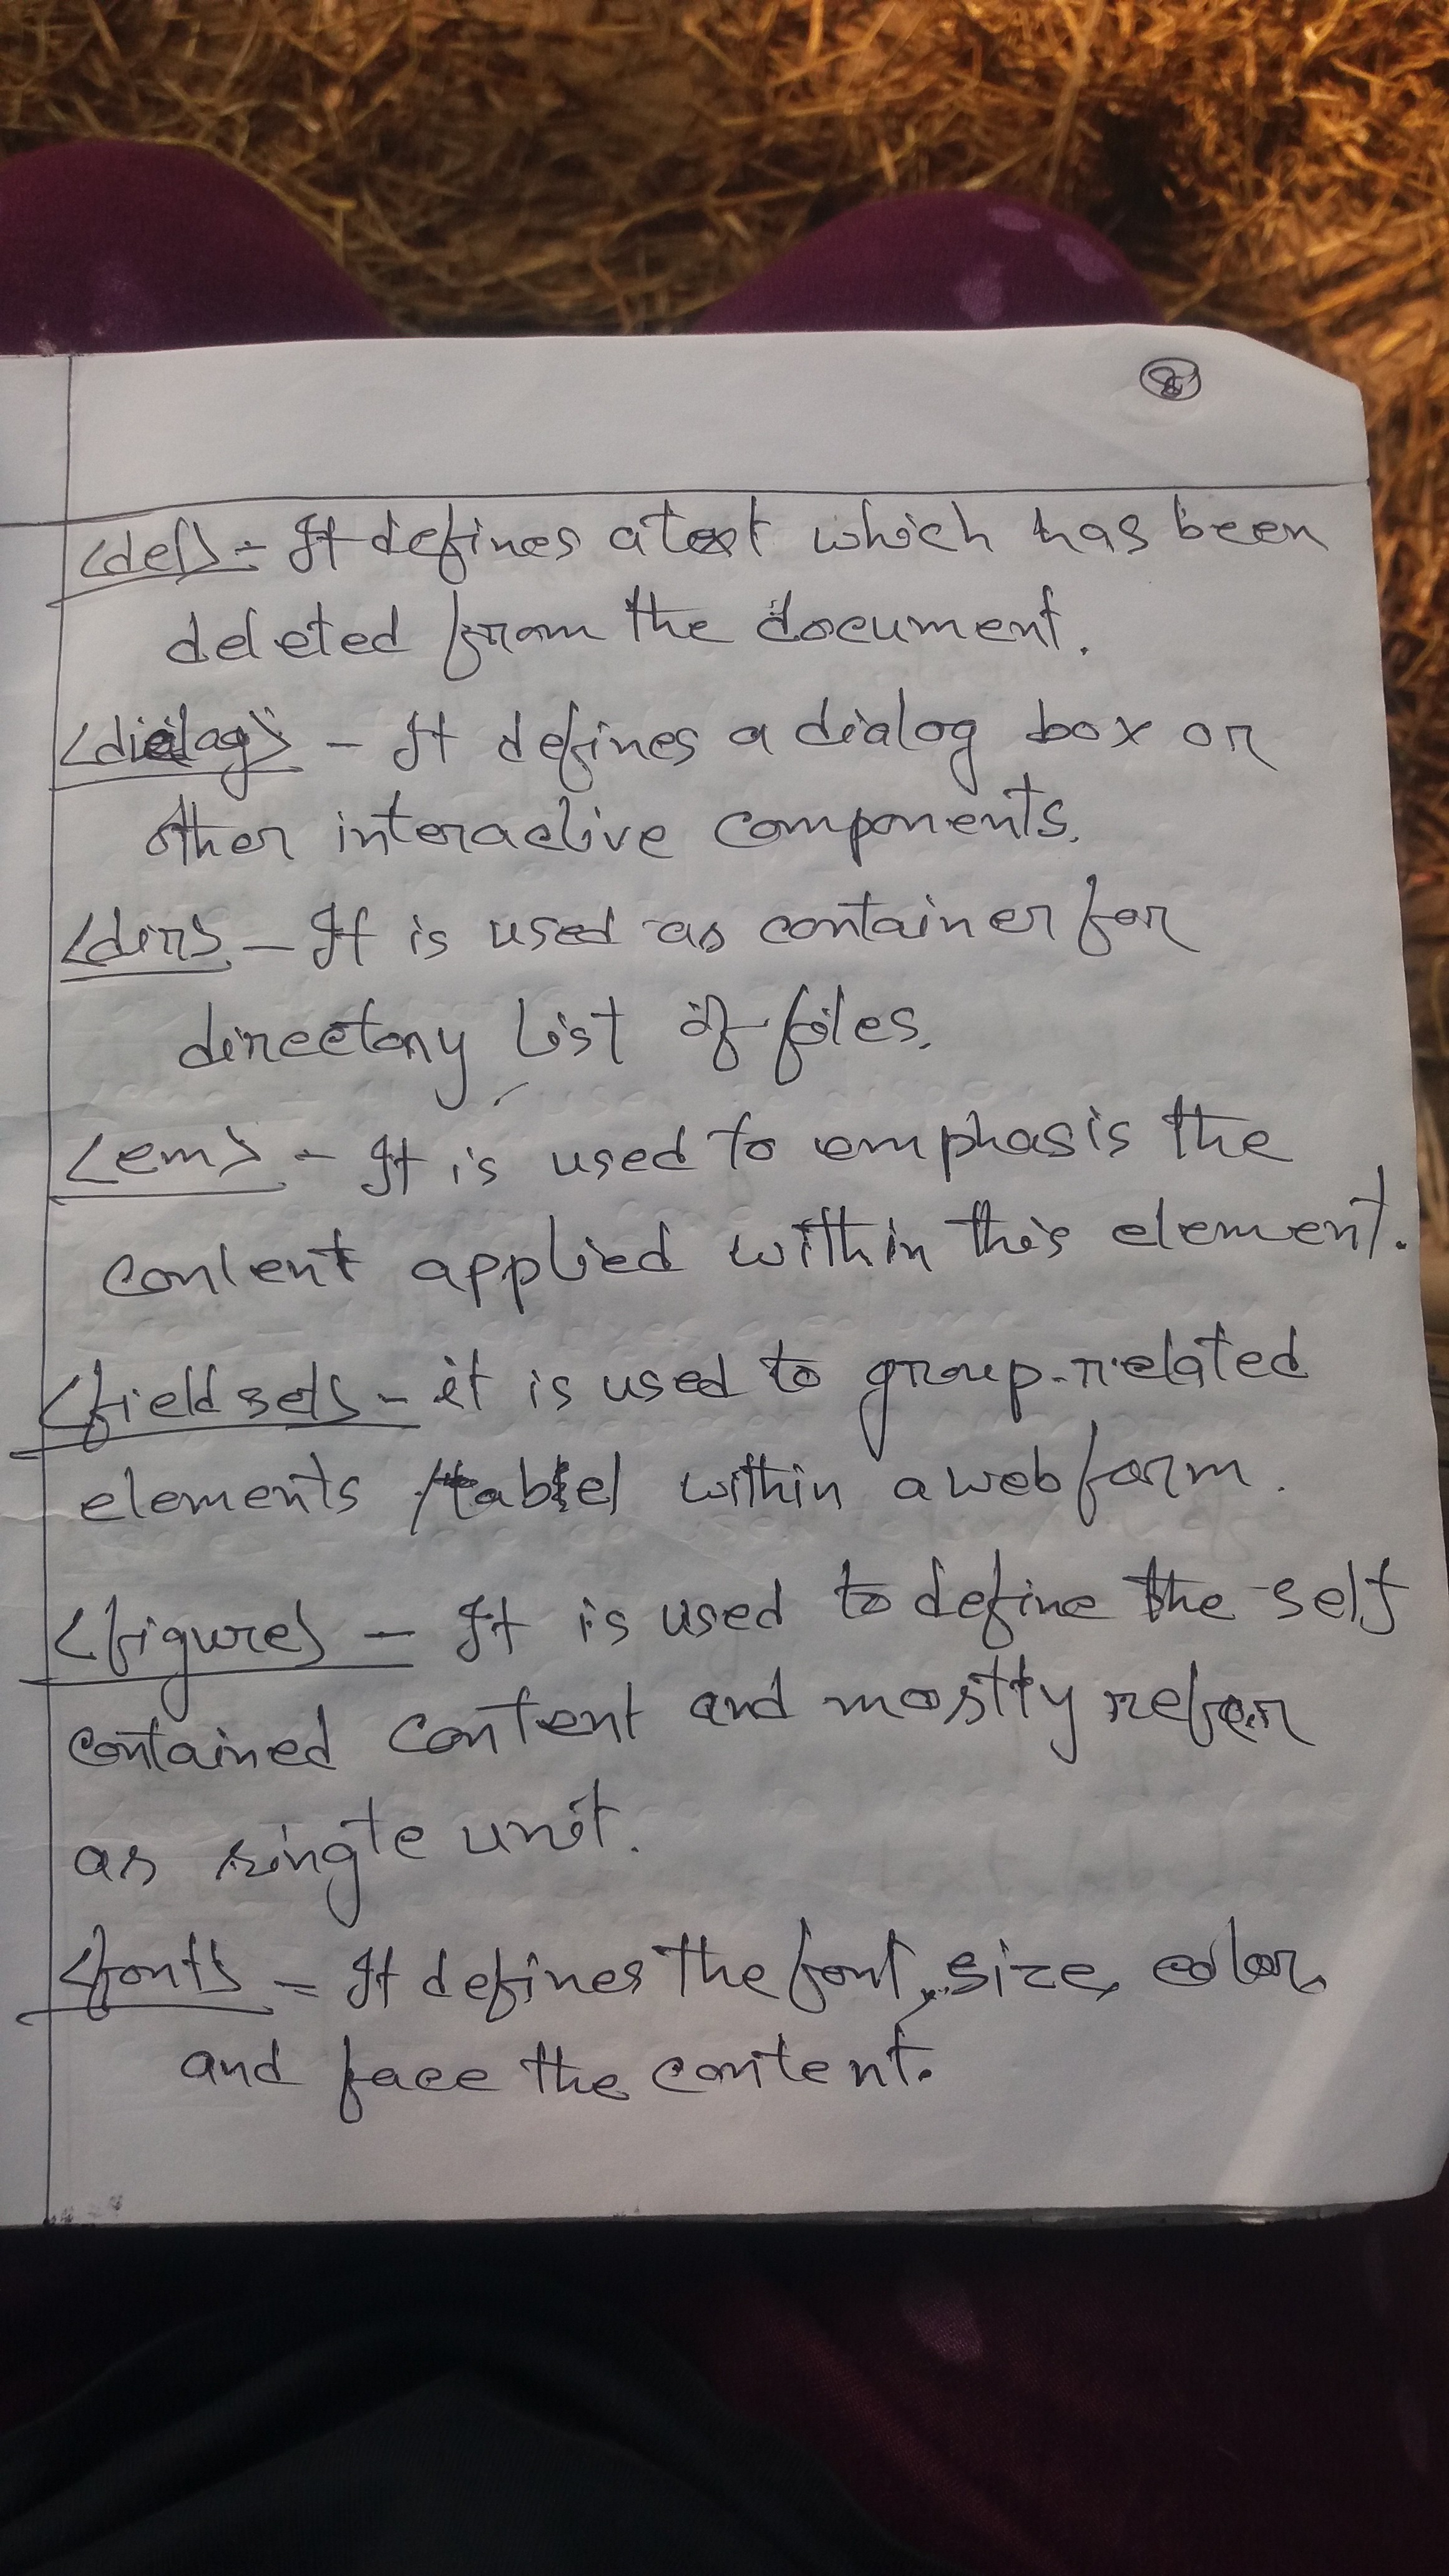 <del> - It defines a text which has been
deleted from the document.
<dialog> - It defines a dialog box or
other interactive components.
<dir> - It is used as container for
directory list of files.
<em> - It is used to emphasis the
content applied within this element.
<fieldset> - it is used to group related
elements /label within a web form.
<figure> - It is used to define the self
contained content and mostly refer
as single unit.
<font> - It defines the font, size, color,
and face the content.